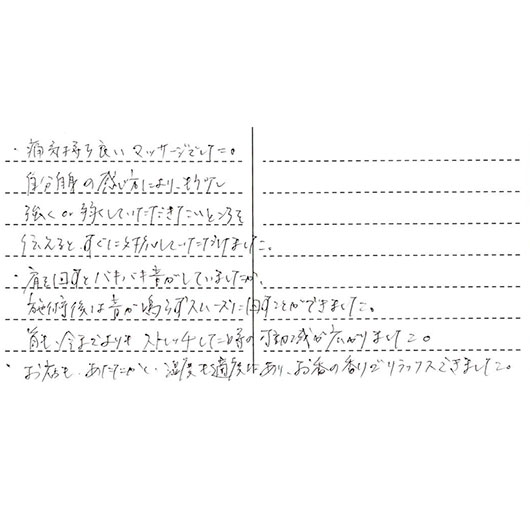 ・痛気持ち良いマッサージでした。
自分自身の感じ方により、もう少し
強く or 弱くしていただきたいところを
伝えると、すぐに対応していただけました。
・肩を回すとバキバキ音がしていましたが、
施術後は音が鳴らずスムーズに回すことができました。
首も、今までよりも ストレッチした時の可動域が広がりました。
・お店も、あたたかく、温度も適度にあり、お香の香りでリラックスできました。